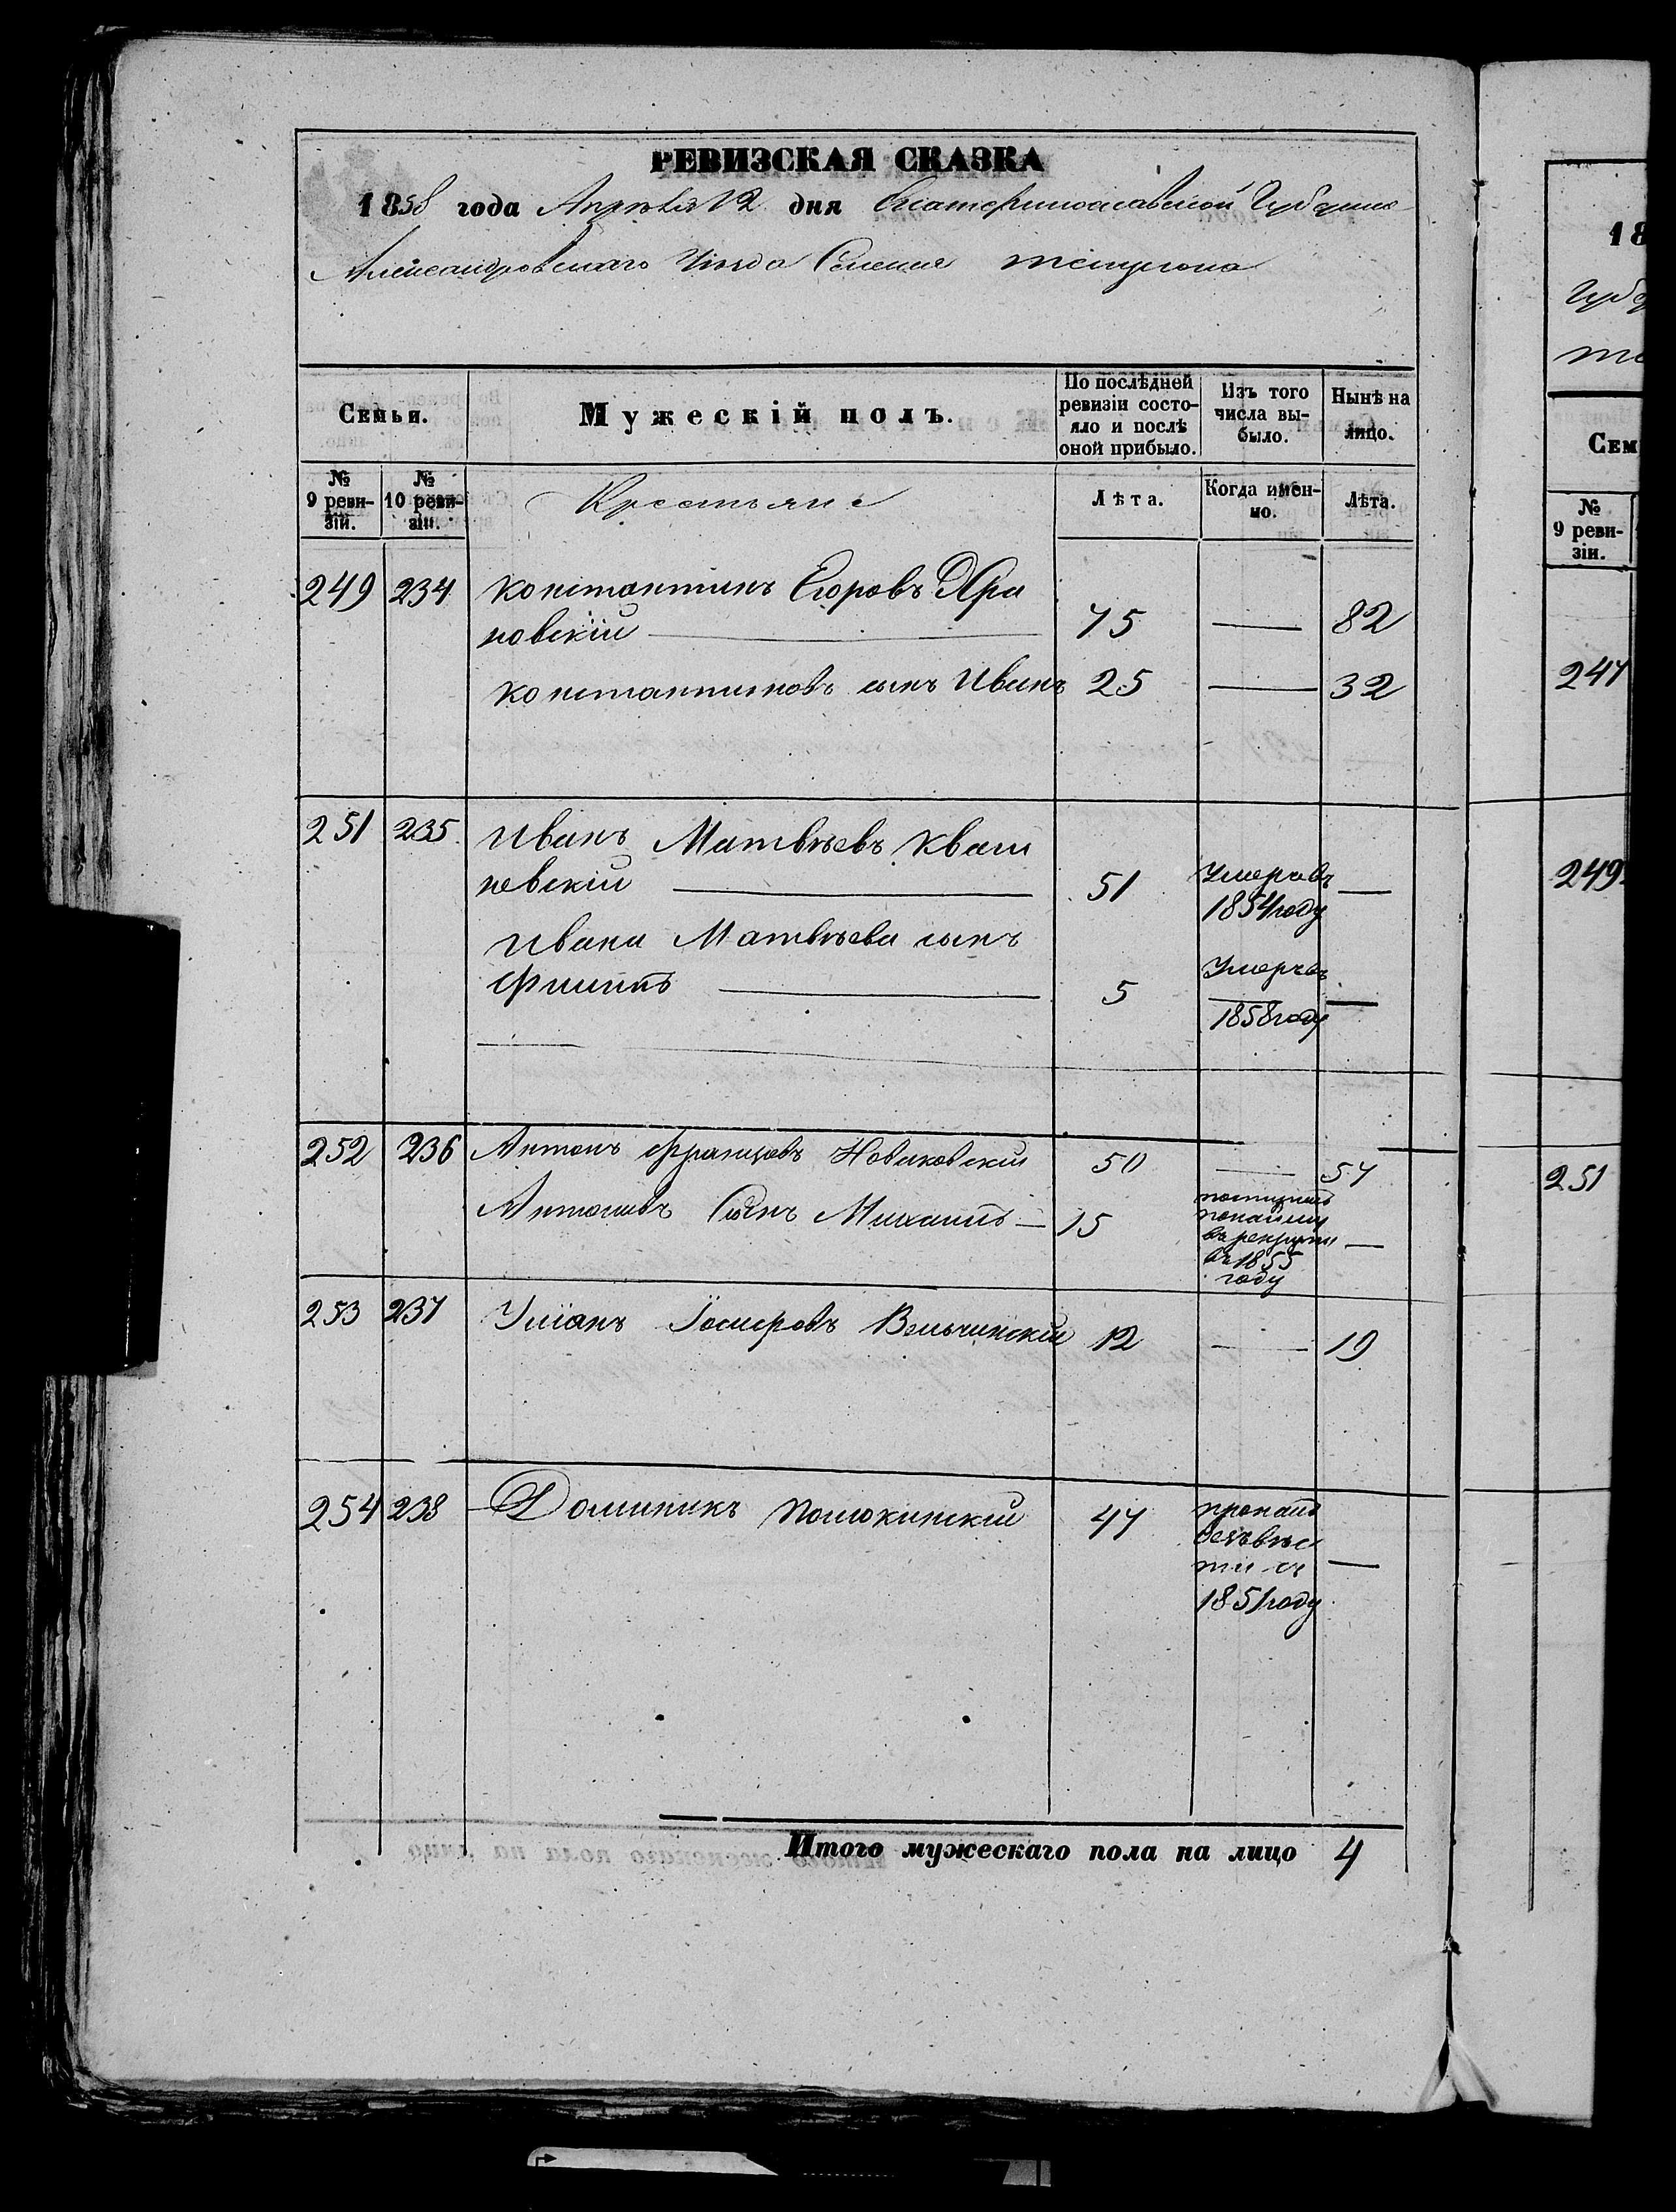 РЕВИЗСКАЯ СКАЗКА
1858 года Апреля 12 дня Екатеринославской Губернии
Александровскаго Уезда Селения
Семьи.
Мужескій полъ.
По послѣдней ревизіи состо-
яло и послѣ
оной прибыло.
Изъ того
числа вы-
было.
Нынѣ на
лицо.
№
9 реви-
зіи.
№
10 реви-
зіи.
Крестьяне
Лѣта.
Когда имен-
но.
Лѣта.
249 234 Константинъ Егоровъ
новскій 75 — 82
Константиновъ сынъ Иванъ 25 — 32
251 235 Иванъ Матвѣевъ Кваш
невскій 51 Умеръ въ —
1854 году
Ивана Матвѣева сынъ
Филипъ 5 Умеръ въ —
1858 году
252 236 Антонъ Францовъ Новаковскій 50 — 57
Антоновъ Сынъ Михаилъ — 15
поступилъ
въ рекруты —
въ 1855
году
253 237 Уліанъ 12 — 19
254 238 Доминикъ 47 пропалъ
безъвѣс
ти съ —
1851 году
Итого мужескаго пола на лицо 4
18
Губе
Сем
№
9 реви-
зіи.
247
249
251